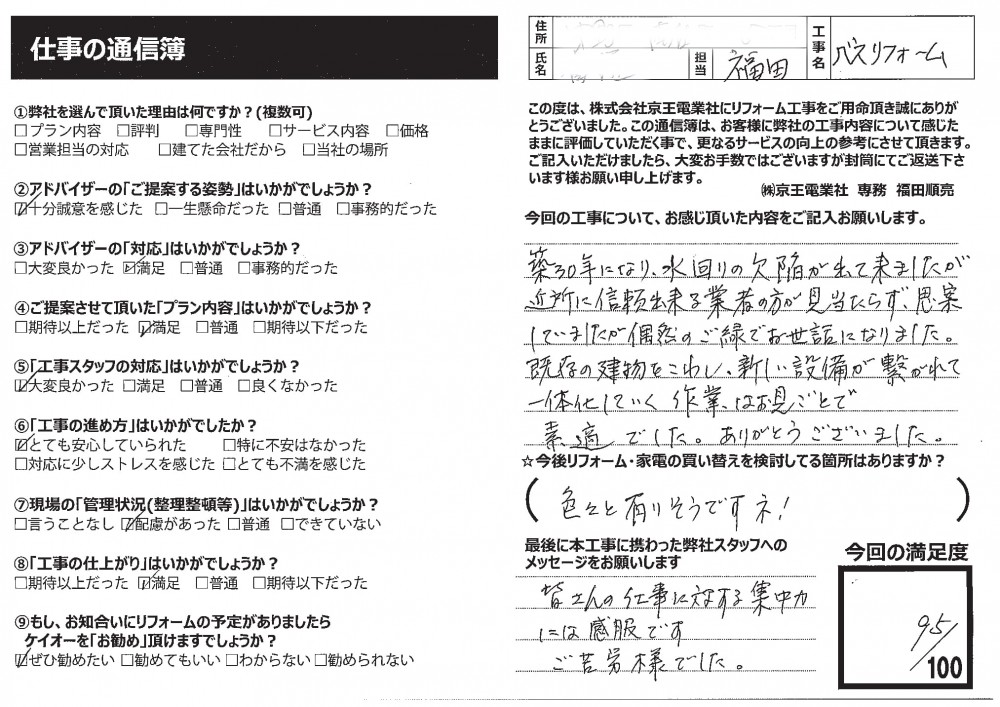 仕事の通信簿
①弊社を選んで頂いた理由は何ですか？(複数可)
□プラン内容 □評判 □専門性 □サービス内容 □価格
□営業担当の対応 □建てた会社だから □当社の場所
②アドバイザーの「ご提案する姿勢」はいかがでしょうか？
☑十分誠意を感じた □一生懸命だった □普通 □事務的だった
③アドバイザーの「対応」はいかがでしょうか？
□大変良かった ☑満足 □普通 □事務的だった
④ご提案させて頂いた「プラン内容」はいかがでしょうか？
□期待以上だった ☑満足 □普通 □期待以下だった
⑤「工事スタッフの対応」はいかがでしょうか？
☑大変良かった □満足 □普通 □良くなかった
⑥「工事の進め方」はいかがでしたか？
☑とても安心していられた □特に不安はなかった
□対応に少しストレスを感じた □とても不満を感じた
⑦現場の「管理状況(整理整頓等)」はいかがでしょうか？
□言うことなし ☑配慮があった □普通 □できていない
⑧「工事の仕上がり」はいかがでしょうか？
□期待以上だった ☑満足 □普通 □期待以下だった
⑨もし、お知合いにリフォームの予定がありましたら
ケイオーを「お勧め」頂けますでしょうか？
☑ぜひ勧めたい □勧めてもいい □わからない □勧められない
住所
氏名
担当 福田
工事名 バスリフォーム
この度は、株式会社京王電業社にリフォーム工事をご用命頂き誠にありが
とうございました。この通信簿は、お客様に弊社の工事内容について感じた
ままに評価していただく事で、更なるサービスの向上の参考にさせて頂きます。
ご記入いただけましたら、大変お手数ではございますが封筒にてご返送下さ
います様お願い申し上げます。
㈱京王電業社 専務 福田順亮
今回の工事について、お感じ頂いた内容をご記入お願いします。
築30年になり、水回りの欠陥が出て来ましたが
近所に信頼出来る業者の方が見当たらず、思案
していましたが偶然のご縁でお世話になりました。
既存の建物をこわし、新しい設備が繋がれて
一体化していく作業、はお見ごとで
素適でした。ありがとうございました。
☆今後リフォーム・家電の買い替えを検討してる箇所はありますか？
(色々と有りそうですネ！)
最後に本工事に携わった弊社スタッフへの
メッセージをお願いします
皆さんの仕事に対する集中力
には感服です
ご苦労様でした。
今回の満足度
95/100